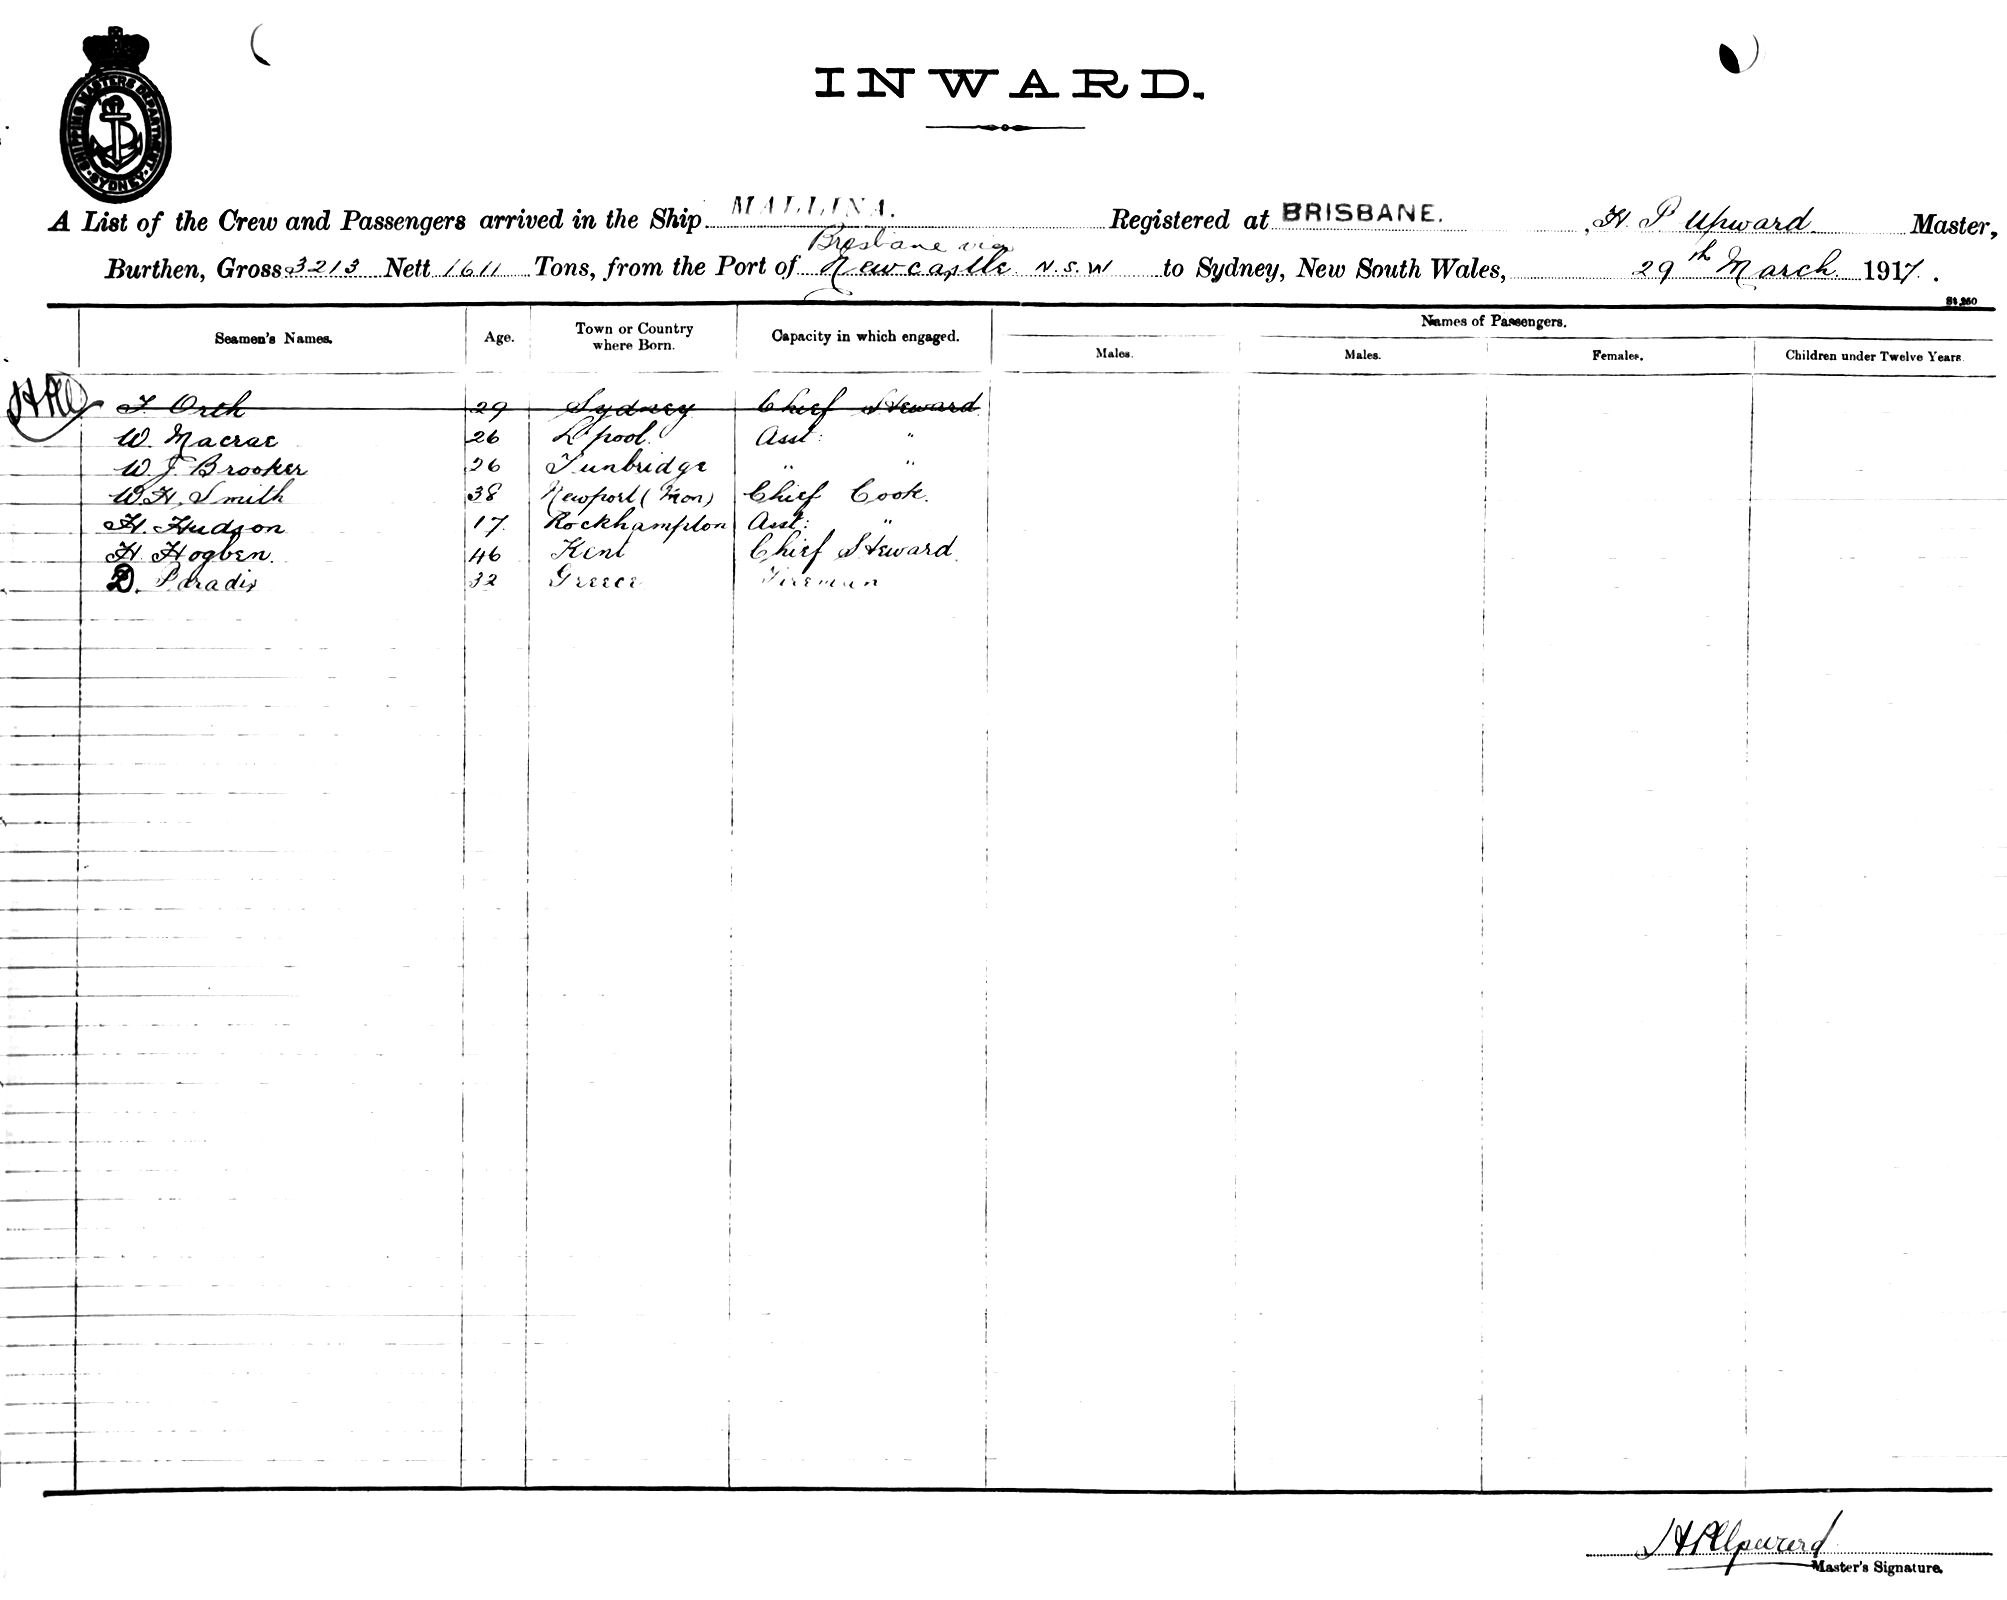 SHIPPING MASTERS DEPARTMENT SYDNEY
INWARD.
A List of the Crew and Passengers arrived in the Ship MALLINA. Registered at BRISBANE. , H. P Upward Master,
Brisbane via
Burthen, Gross 3213 Nett 1611 Tons, from the Port of Newcastle N.S.W to Sydney, New South Wales, 29th March 1917.
Seamen's Names. Age. Town or Country where Born. Capacity in which engaged. Names of Passengers.
Males. Males. Females. Children under Twelve Years
Orth 29 Sydney Chief Steward
W. Macrae 26 L'pool. Asst: "
W. J. Brooker 26 Tunbridge " "
W. H. Smith 38 Newport (Mon) Chief Cook.
H. Hudson 17. Rockhampton Asst: "
H. Hogben. 46 Kent Chief Steward
D. Paradis 32 Greece Fireman
H P Upward
Master's Signature.